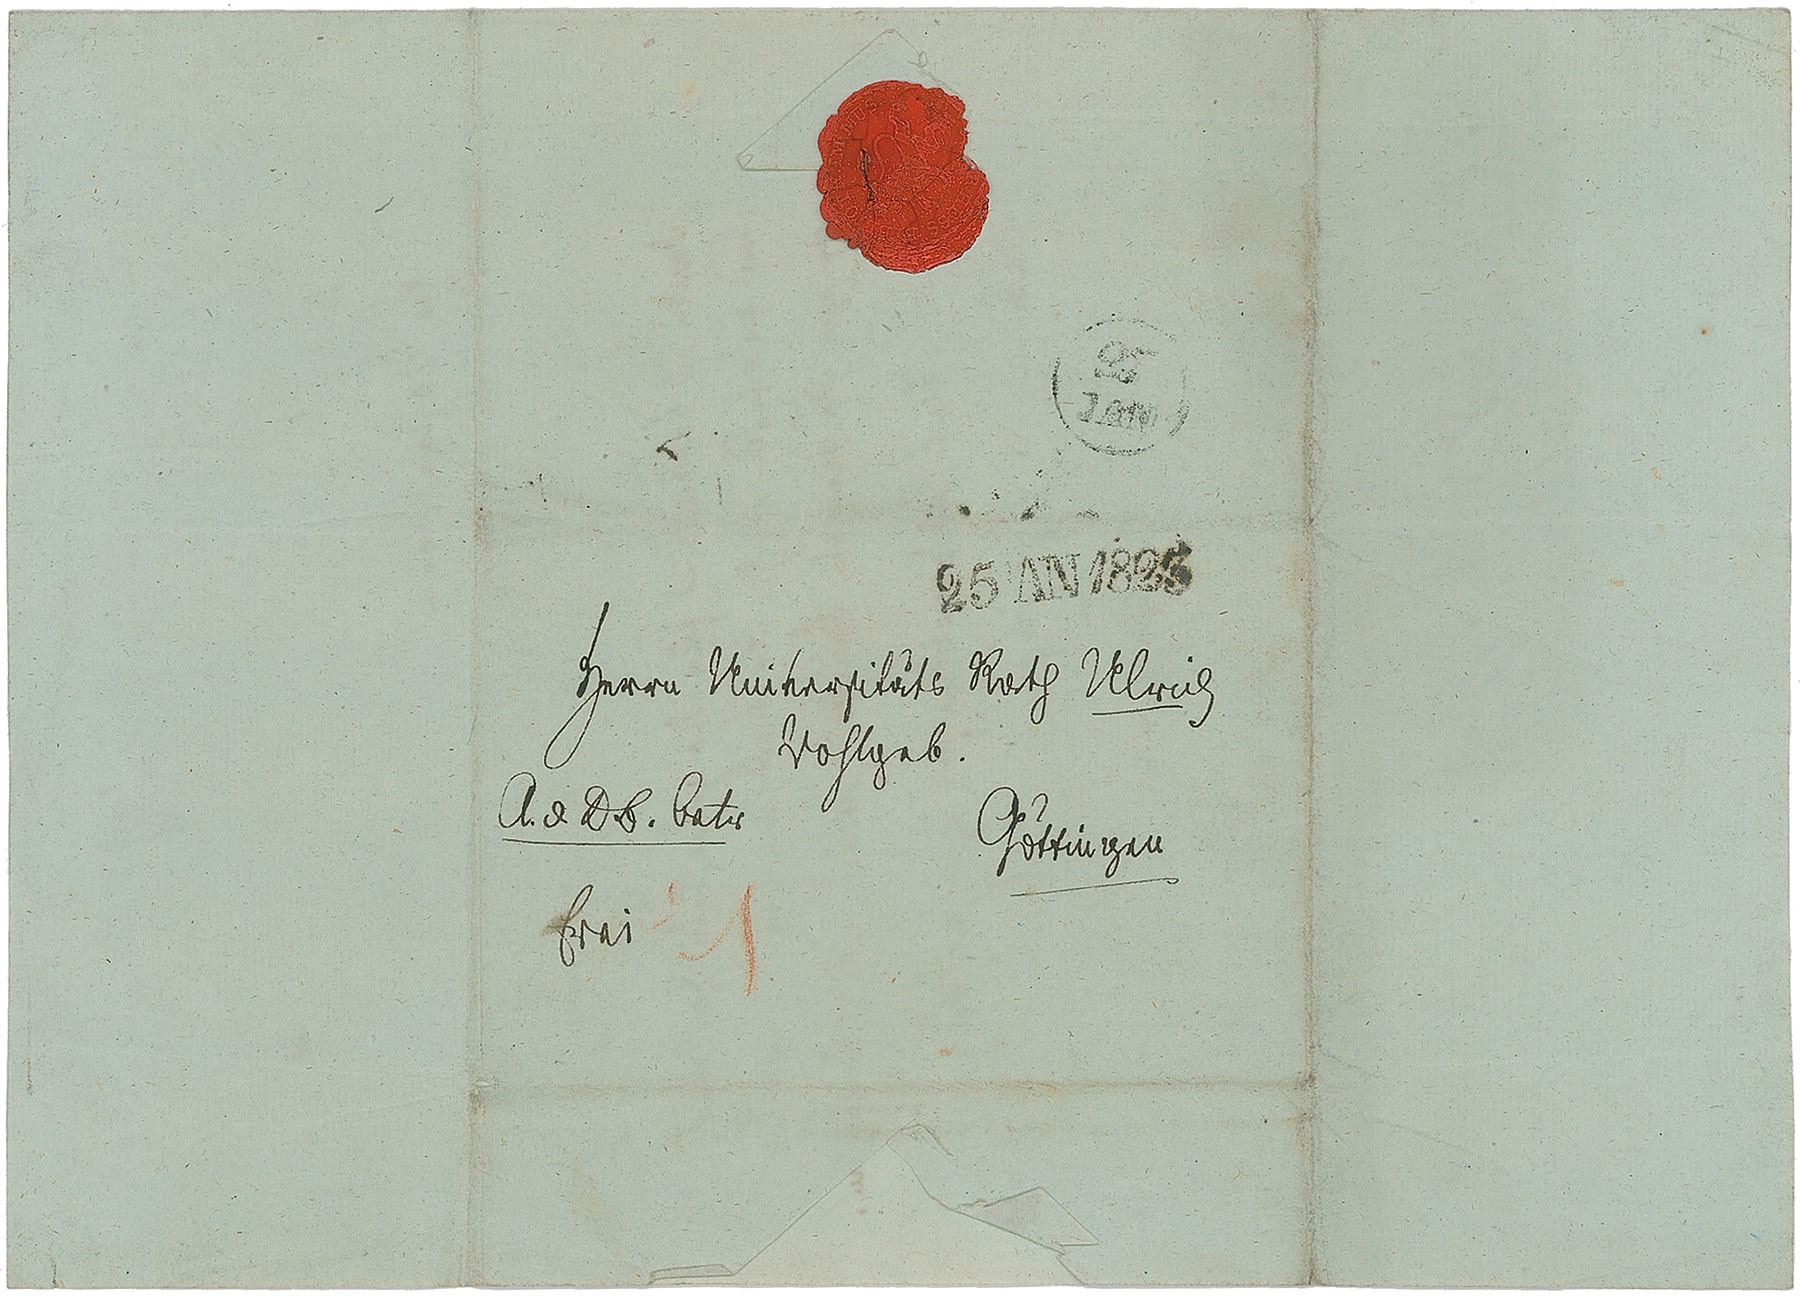 25 IAN 1825
Herrn Universitäts Rath Ulrich
Wohlgeb.
A. d D B.
Göttingen
frei 1